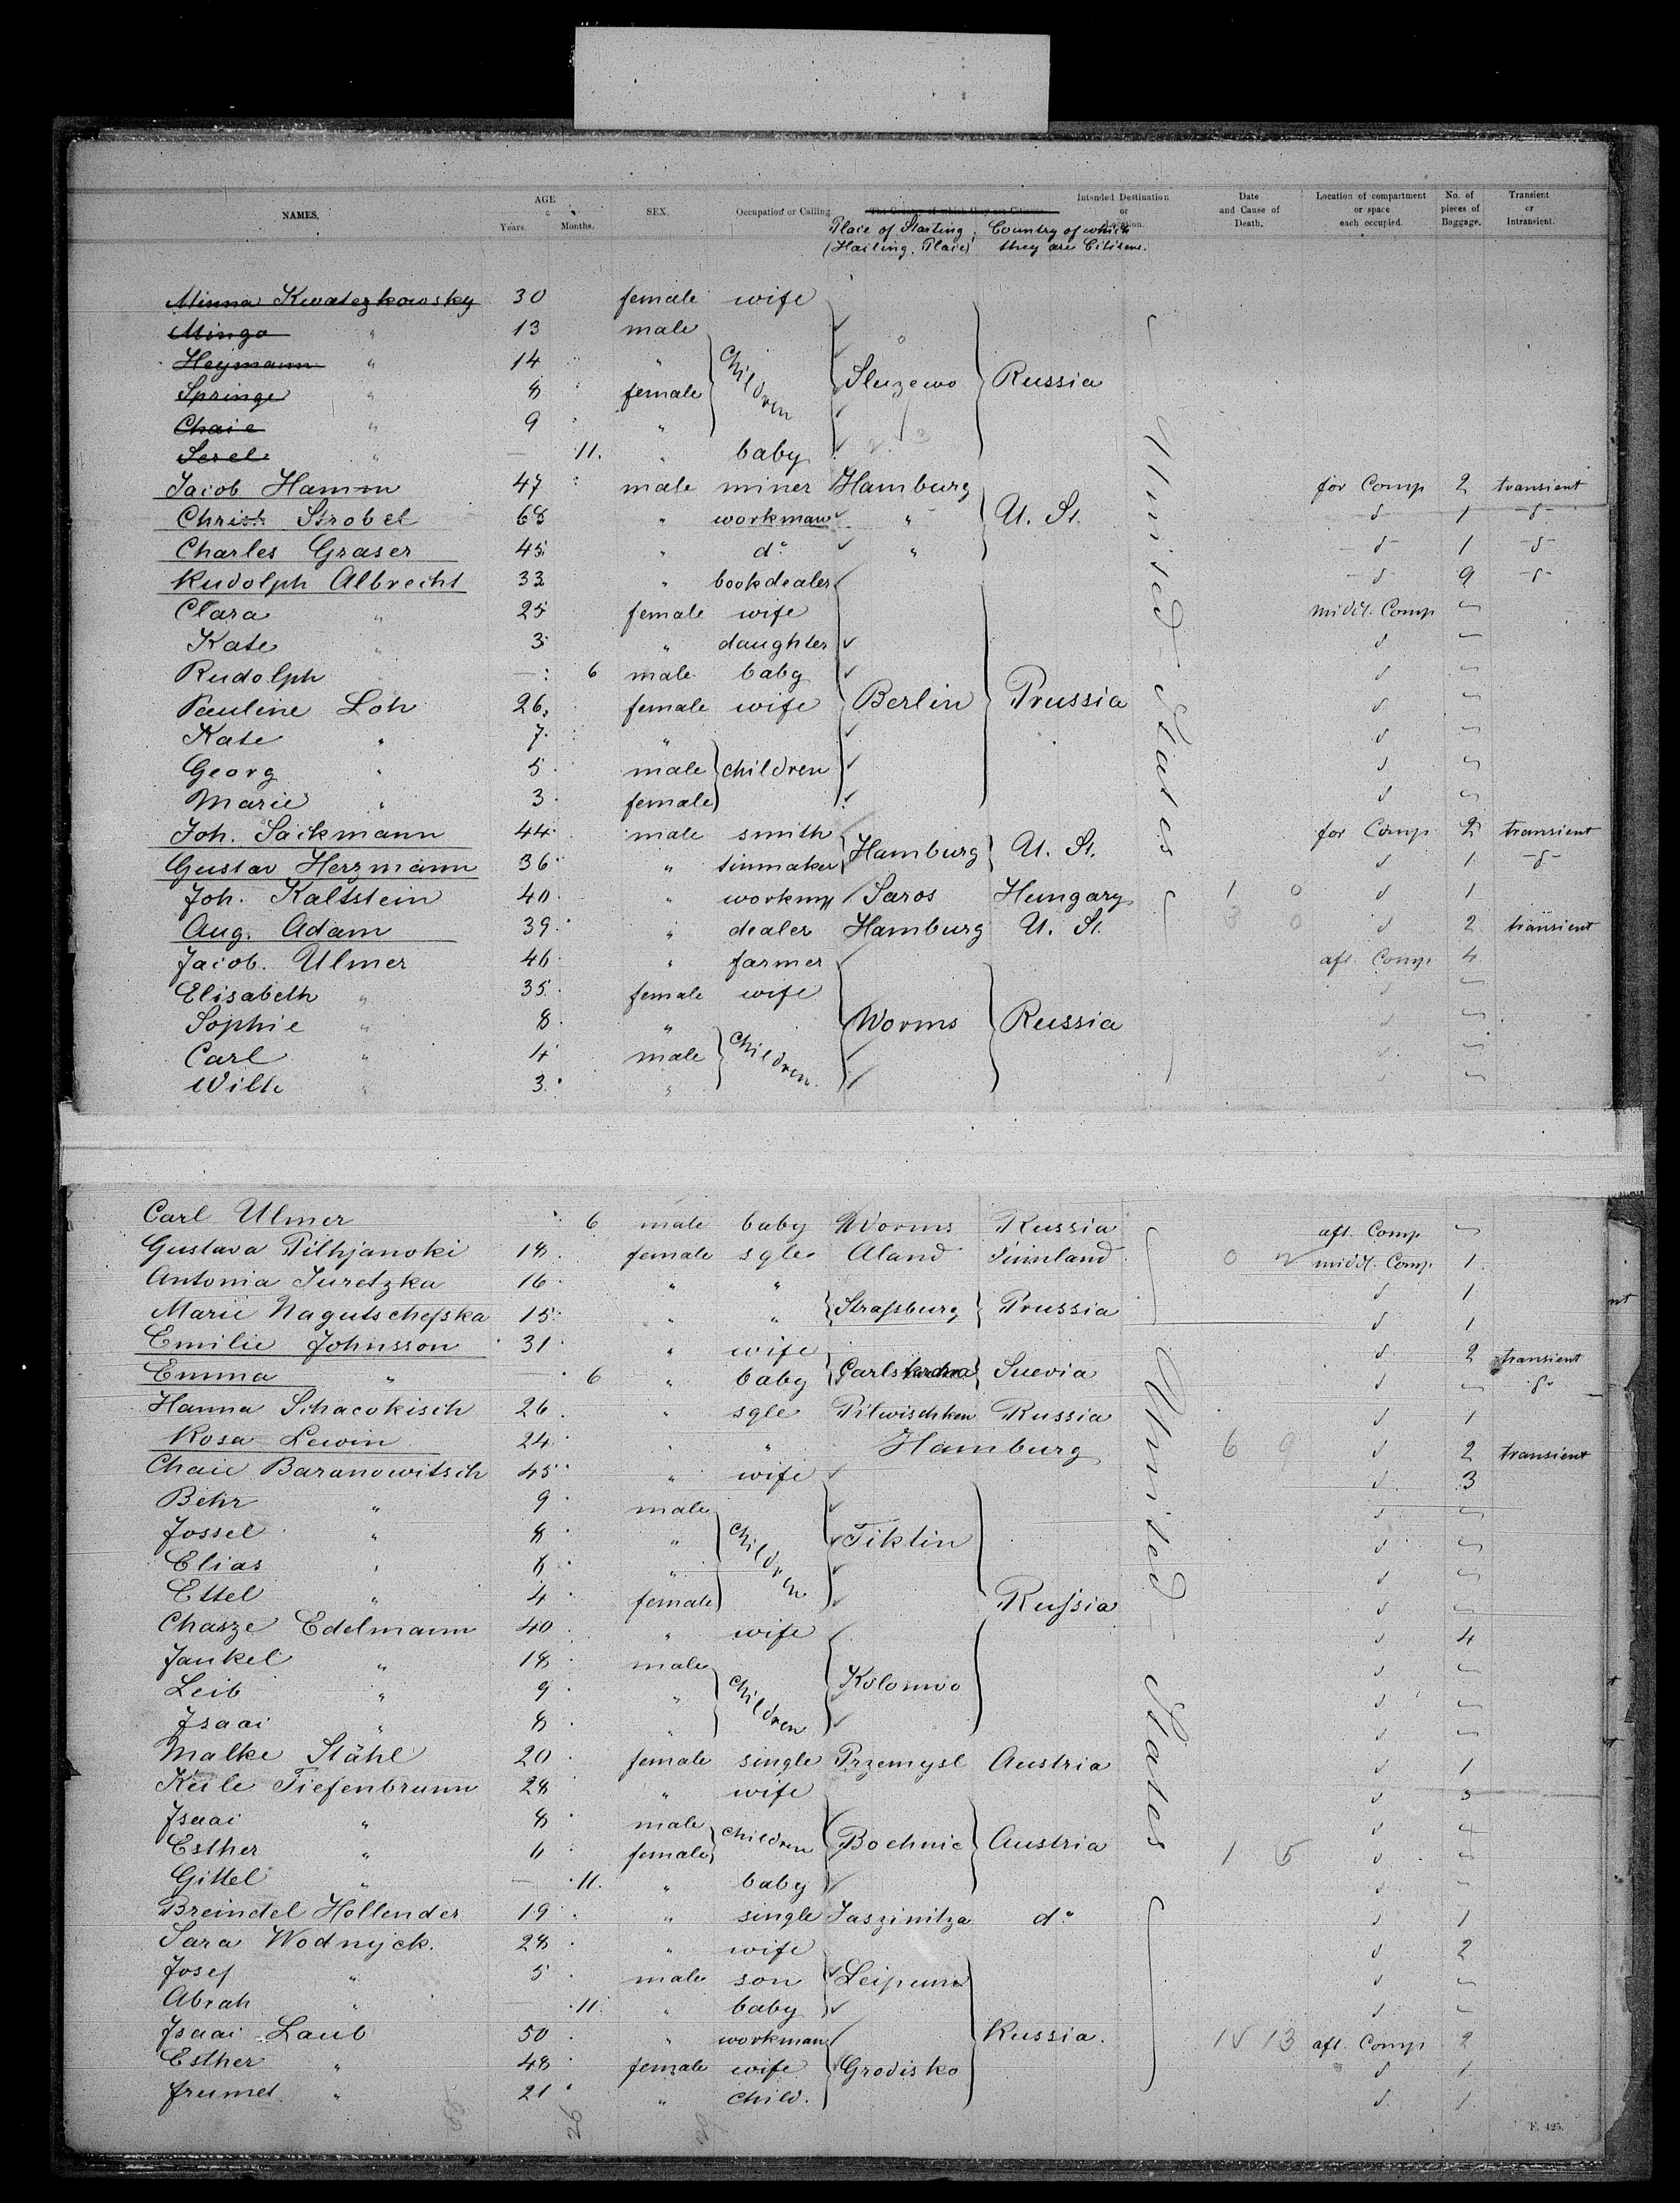 NAMES. AGE Years. Months. SEX. Occupation or Calling The Country of which they are Citizens. Intended Destination or Location. Date and Cause of Death. Location of compartment or space each occupied. No. of pieces of Baggage. Transient or Intransient.
Place of Starting, (Hailing. Place) Country of which they are Citizens.
Minna Kwatezkowsky 30 female wife
Minga " 13 male
Heymann " 14 " children
Springe " 8 female Sluzewo Russia
Chaie " 9 "
Serel " — 11. " baby
Jacob Hamm 47 male miner Hamburg for Comp 2 transient
Christ. Strobel 68 " workman " U. St. d 1 d
Charles Graser 45 " do " d 1 d
Rudolph Albrecht 33 " bookdealer d 9 d
Clara " 25 female wife middl. Comp —
Kate " 3 " daughter d —
Rudolph — 6 male baby d —
Pauline Loh 26 female wife Berlin Prussia d —
Kate " 7 " d —
Georg " 5 male children d —
Marie " 3 female d —
Joh. Sackmann 44 male smith for Comp 2 transient
Gustav Herzmann 36 " tinmaker Hamburg U. St. d 1 d
Joh. Kaltstein 40 " workm Saros Hungary 1 0 d 1
Aug. Adam 39 " dealer Hamburg U. St. 3 0 d 2 transient
Jacob. Ulmer 46 " farmer aft. Comp 4
Elisabeth " 35 female wife d —
Sophie " 8 " Worms Russia d —
Carl " 4 male children d —
Wilh " 3 " d —
United States
Carl Ulmer 6 male baby Worms Russia aft. Comp —
Gustava Pilhjanoki 18 female sgle Aland Finnland 0 2 middl. Comp 1
Antonia Juretzka 16 " " d 1
Marie Nagutschefska 15 " " Strassburg Prussia d 1
Emilie Johnsson 31 " wife d 2 transient
Emma " — 6 " baby Carlskrona Suevia d — d
Hanna Schacokisch 26 " sgle Pilwischken Russia d 1
Rosa Lewin 24 " " Hamburg 6 9 d 2 transient
Chaie Baranowitsch 45 " wife d 3
Behr " 9 male d —
Jossel " 8 " children Tiktin d —
Elias " 8 " d —
Ettel " 4 female Russia d —
Chasze Edelmann 40 " wife d 4
Jankel " 18 male d —
Leib " 9 " children Kolonwo d —
Isaai " 8 " d —
Malke Stähl 20 female single Przemysl Austria d 1
Keile Tiefenbrunn 28 " wife d 3
Isaai " 8 male d
Esther " 4 female children Bochnie Austria 1 5 d
Gittel " — 11. " baby d —
Breindel Hollender 19 " single Jaszinitza do d 1
Sara Wodnyck. 28 " wife d 2
Josef " 5 male son Leipuna d —
Abrah " — 11. " baby d —
Isaai Laub 50 " workman Russia. 13 aft. Comp 2
Esther " 48 female wife Grodisko d 1
frumet " 21 " child. d 1
United States
26
F. 425.